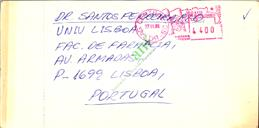 DR SANTOS
UNIV LISBOA,
FAC. DE FARMACIA,
AV. ARMADAS,
P-1699 LISBOA,
PORTUGAL
4400